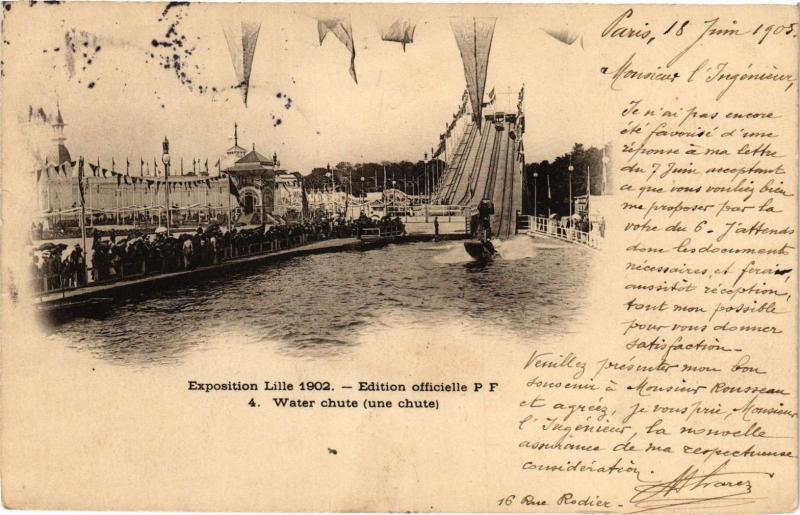 Paris, 18 Juin 1905.
Monsieur l'Ingénieur,
Je n'ai pas encore
été favorisé d'une
réponse à ma lettre
du 7 Juin acceptant
ce que vous vouliez bien
me proposer par la
votre du 6 - J'attends
donc les documents
nécessaires, et ferai,
aussitôt réception,
tout mon possible
pour vous donner
satisfaction -
Veuillez présenter mon bon
souvenir à Monsieur Rousseau
et agréez, je vous prie, Monsieur
l'Ingénieur, la nouvelle
assurance de ma respectueuse
considération.
Alvarez
16 Rue Rodier -
Exposition Lille 1902. — Edition officielle P F
4. Water chute (une chute)